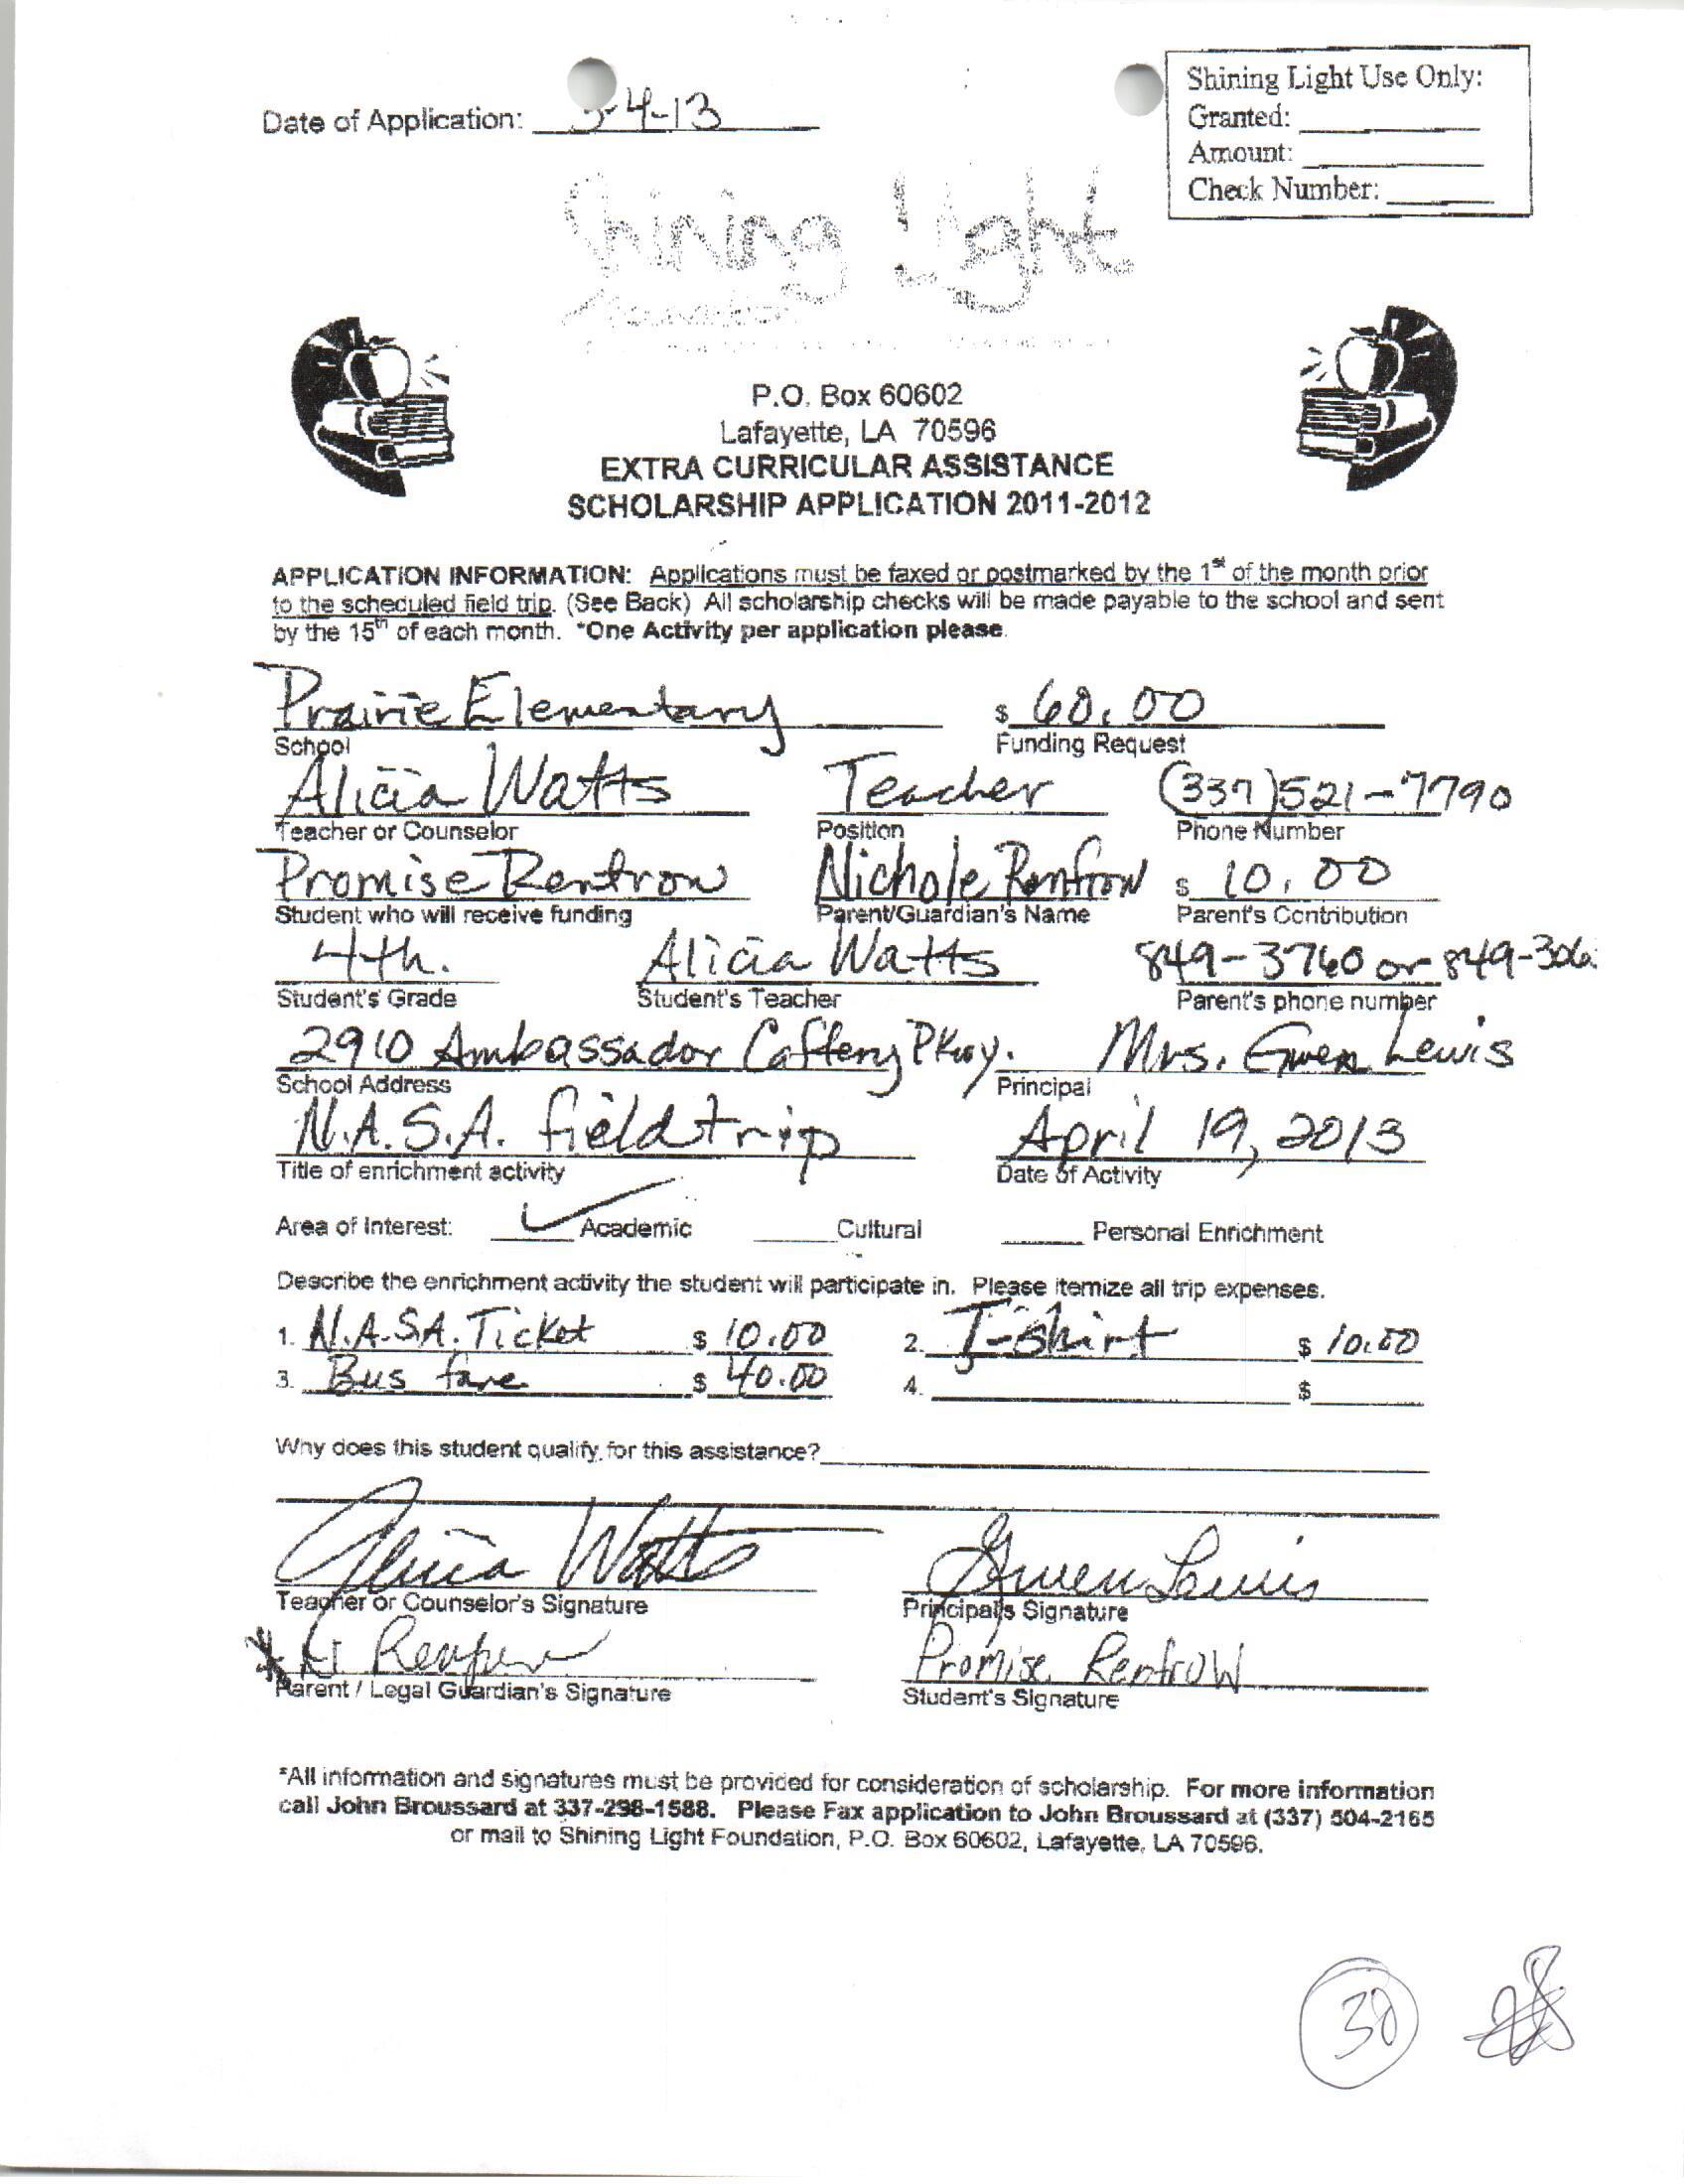 Date of Application: 3-4-13
Shining Light Use Only:
Granted:
Amount:
Check Number:
Shining Light
Foundation
P.O. Box 60602
Lafayette, LA 70596
EXTRA CURRICULAR ASSISTANCE
SCHOLARSHIP APPLICATION 2011-2012
APPLICATION INFORMATION: Applications must be faxed or postmarked by the 1st of the month prior
to the scheduled field trip. (See Back) All scholarship checks will be made payable to the school and sent
by the 15th of each month. *One Activity per application please.
Prairie Elementary $ 60.00
School Funding Request
Alicia Watts Teacher (337)521-7790
Teacher or Counselor Position Phone Number
Promise Renfrow Nichole Renfrow $ 10.00
Student who will receive funding Parent/Guardian's Name Parent's Contribution
4th. Alicia Watts 849-3760 or 849-306
Student's Grade Student's Teacher Parent's phone number
2910 Ambassador Caffery Pkwy. Mrs. Gwen Lewis
School Address Principal
N.A.S.A. field trip April 19, 2013
Title of enrichment activity Date of Activity
Area of Interest: ✓ Academic Cultural Personal Enrichment
Describe the enrichment activity the student will participate in. Please itemize all trip expenses.
1. N.A.S.A. Ticket $ 10.00 2. T-shirt $ 10.00
3. Bus fare $ 40.00 4. $
Why does this student qualify for this assistance?
Alicia Watts Gwen Lewis
Teacher or Counselor's Signature Principal's Signature
N Renfrow Promise Renfrow
Parent / Legal Guardian's Signature Student's Signature
*All information and signatures must be provided for consideration of scholarship. For more information
call John Broussard at 337-298-1588. Please Fax application to John Broussard at (337) 504-2165
or mail to Shining Light Foundation, P.O. Box 60602, Lafayette, LA 70596.
30